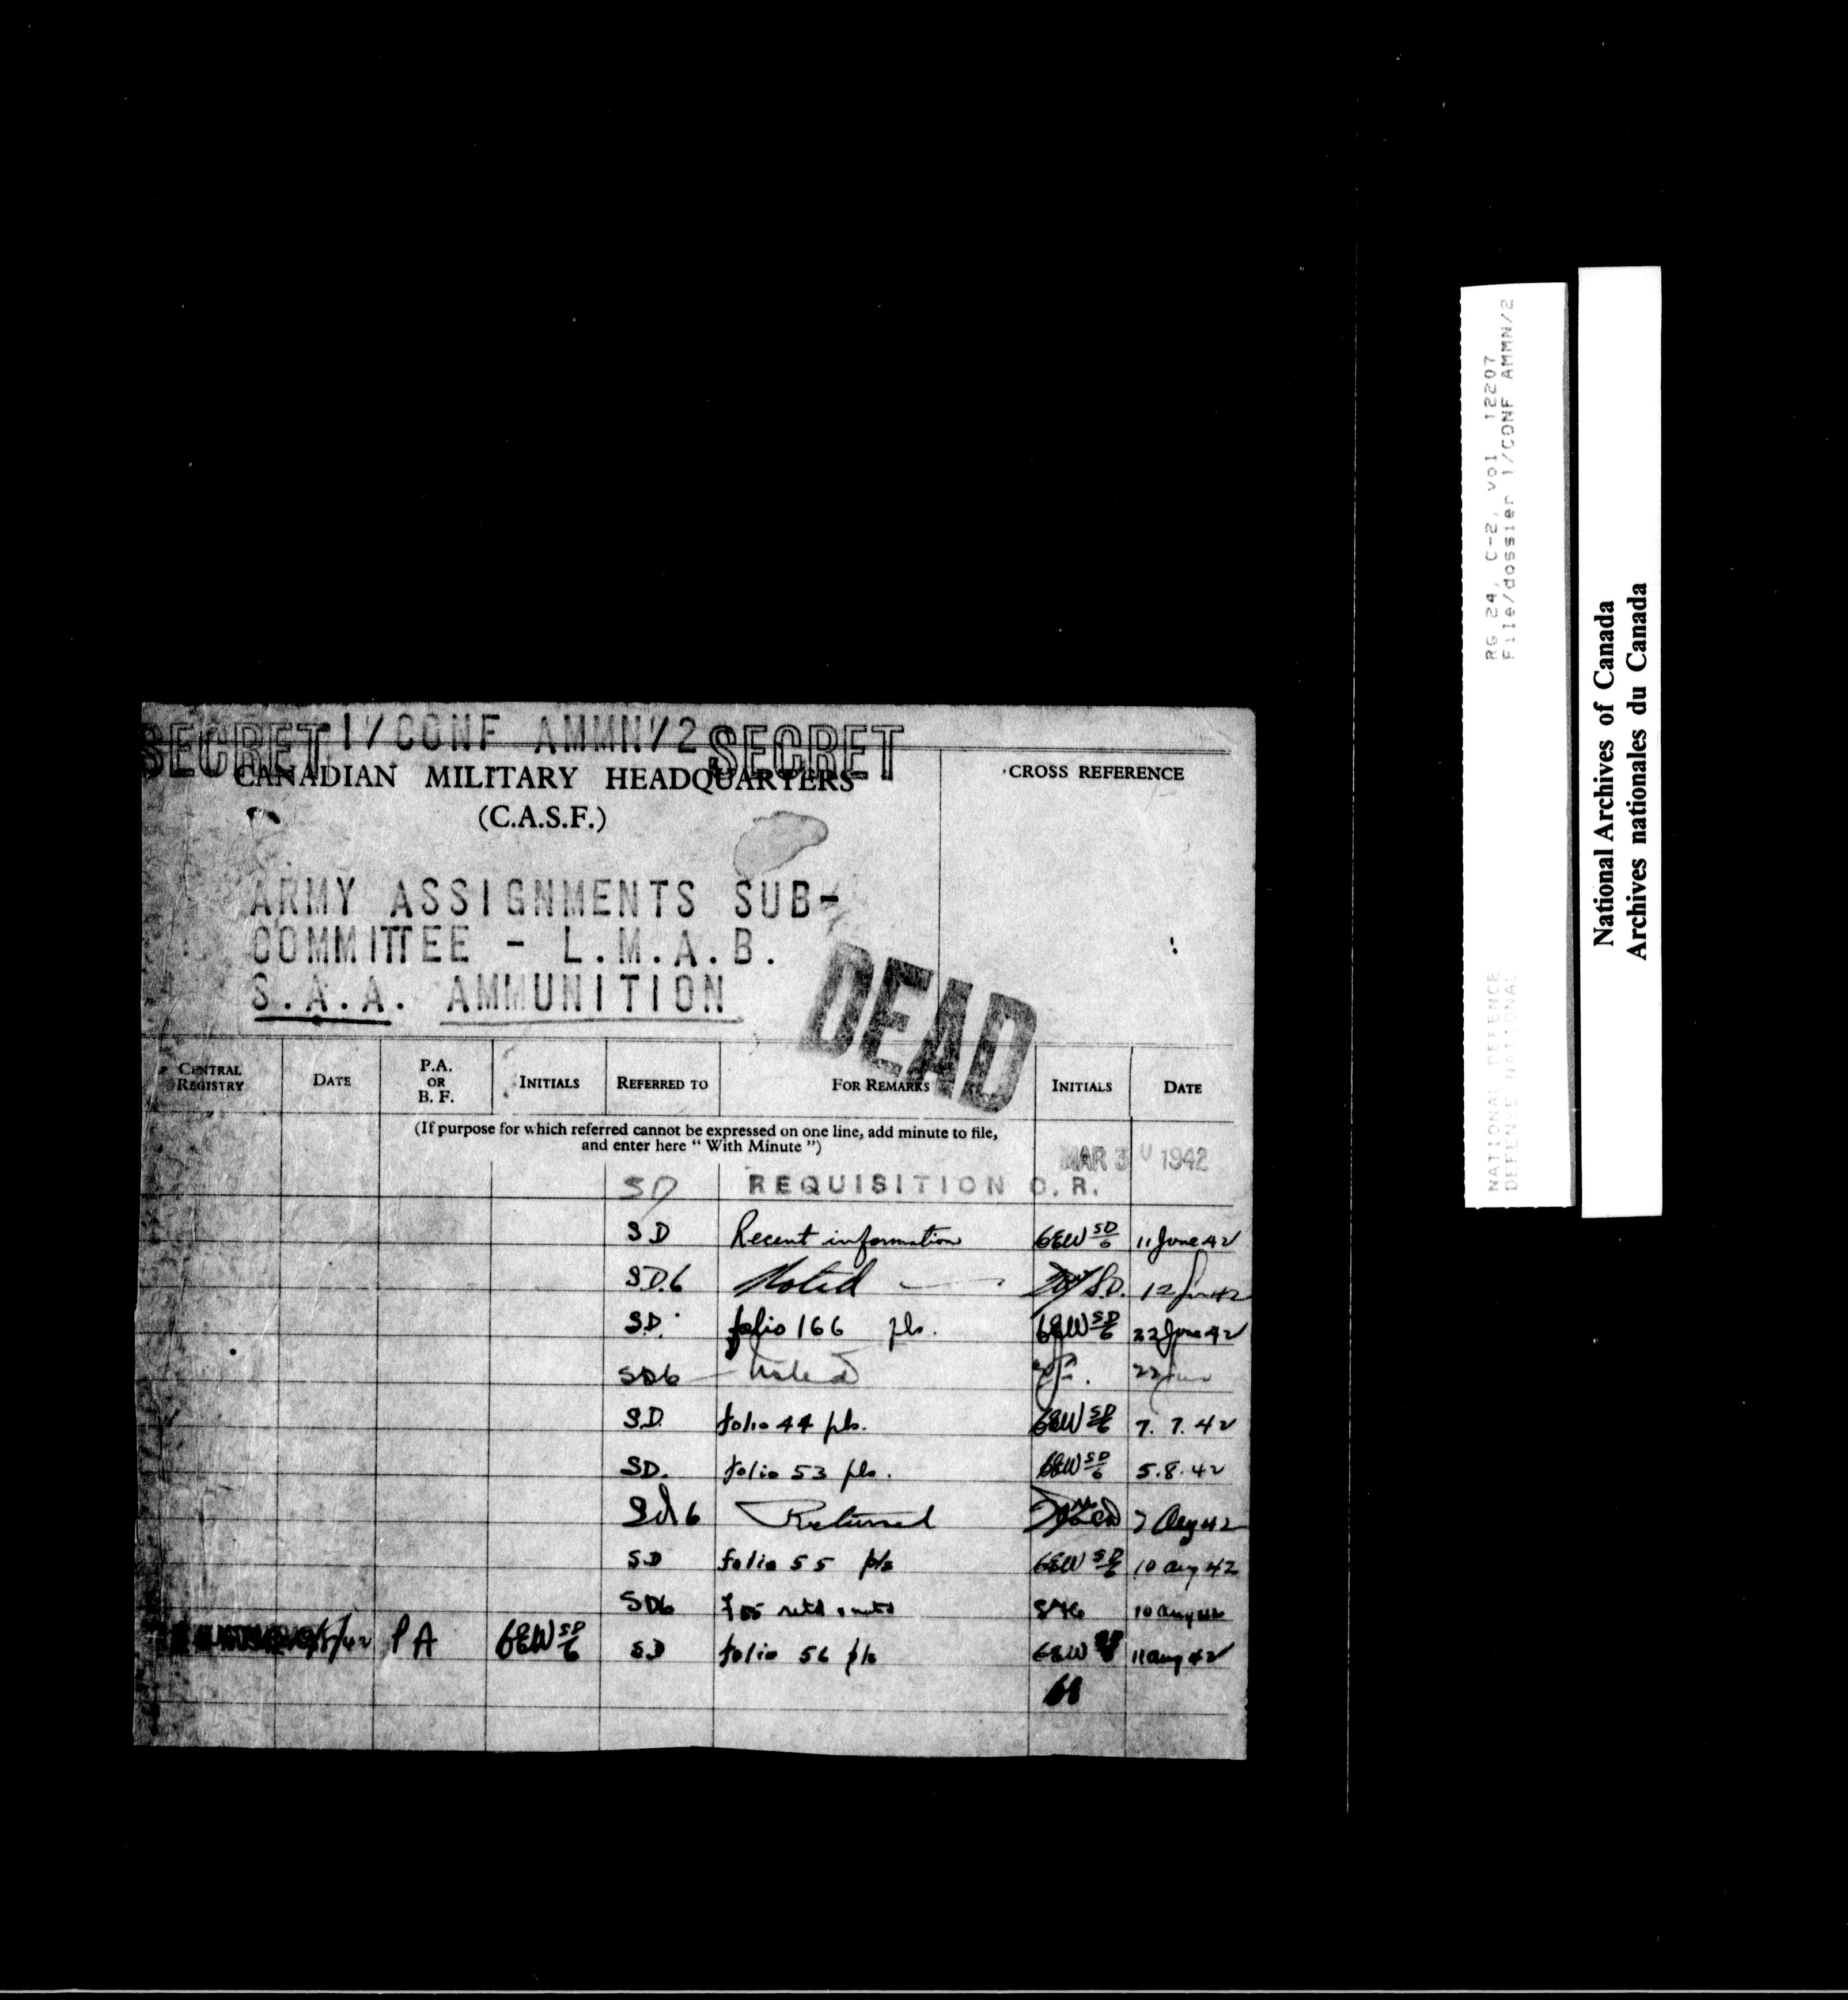 SECRET 1/CONF AMMN/2 SECRET
CANADIAN MILITARY HEADQUARTERS
(C.A.S.F.)
CROSS REFERENCE
ARMY ASSIGNMENTS SUB-
COMMITTEE - L.M.A.B.
S.A.A. AMMUNITION
DEAD
CENTRAL REGISTRY DATE P.A. OR B. F. INITIALS REFERRED TO FOR REMARKS INITIALS DATE
(If purpose for which referred cannot be expressed on one line, add minute to file,
and enter here “ With Minute ”)
MAR 30 1942
SD REQUISITION C.R.
SD Recent information GEW SD/6 11 June 42
SD.6 Noted S.D. 12 Jun 42
S.D. folio 166 pls. GEW SD/6 22 June 42
SD6 Noted 22 June
S.D. folio 44 pls. GEW SD/6 7. 7. 42
SD. folio 53 pls. GEW SD/6 5.8.42
Sd 6 Returned 7 Aug 42
SD folio 55 pls GEW SD/6 10 Aug 42
SD6 10 Aug 42
PA GEW SD/6 SD folio 56 pls GEW 11 Aug 42
RG 24, C-2, vol 12207
File/dossier 1/CONF AMMN/2
NATIONAL DEFENCE
DEFENSE NATIONAL
National Archives of Canada
Archives nationales du Canada